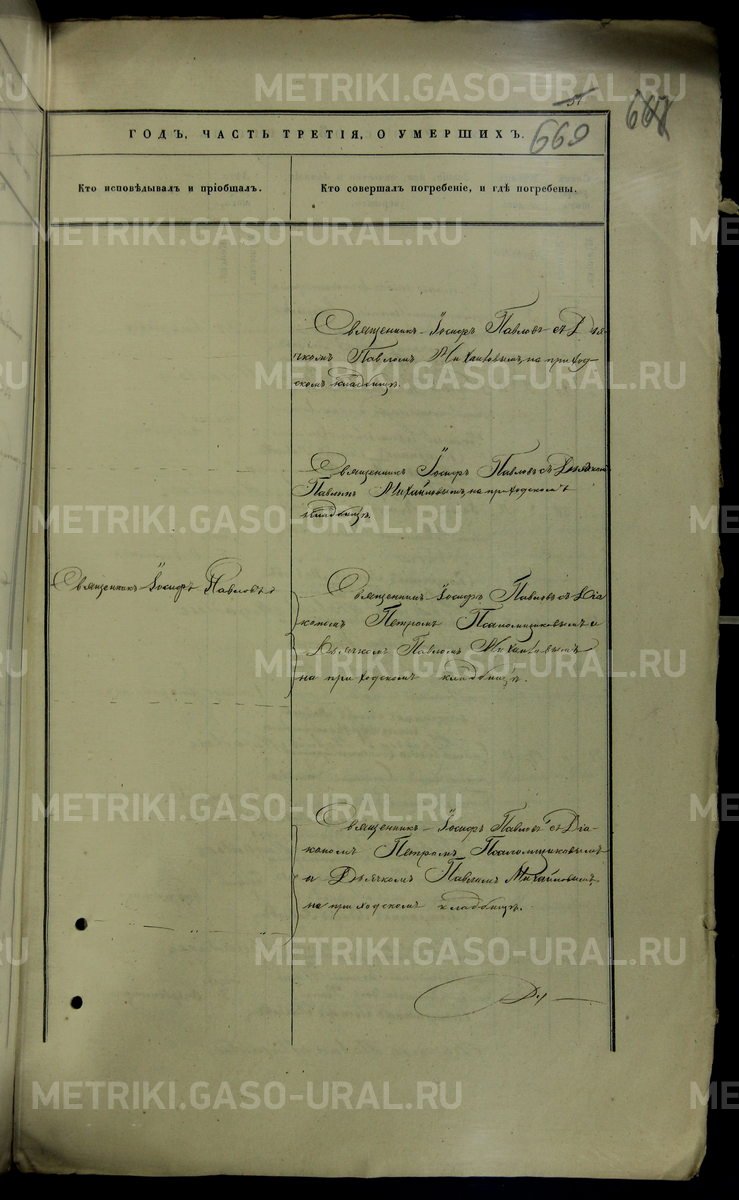 57
669
ГОДЪ, ЧАСТЬ ТРЕТІЯ, О УМЕРШИХЪ.
Кто исповѣдывалъ и пріобщалъ.
Кто совершалъ погребеніе, и гдѣ погребены.
Священникъ Іосифъ Павловъ съ Дья-
чкомъ Павломъ Михайловымъ, на приход-
скомъ кладбищѣ.
Священникъ Іосифъ Павловъ съ Дьячкомъ
Павломъ Михайловымъ, на приходскомъ
кладбищѣ.
Священникъ Іосифъ Павловъ
Священникъ Іосифъ Павловъ съ Діа-
кономъ Петромъ Псаломщиковымъ и
Дьячкомъ Павломъ Михайловымъ
на приходскомъ кладбищѣ.
Священникъ Іосифъ Павловъ съ Діа-
кономъ Петромъ Псаломщиковымъ
и Дьячкомъ Павломъ Михайловымъ,
на приходскомъ кладбищѣ.
METRIKI.GASO-URAL.RU